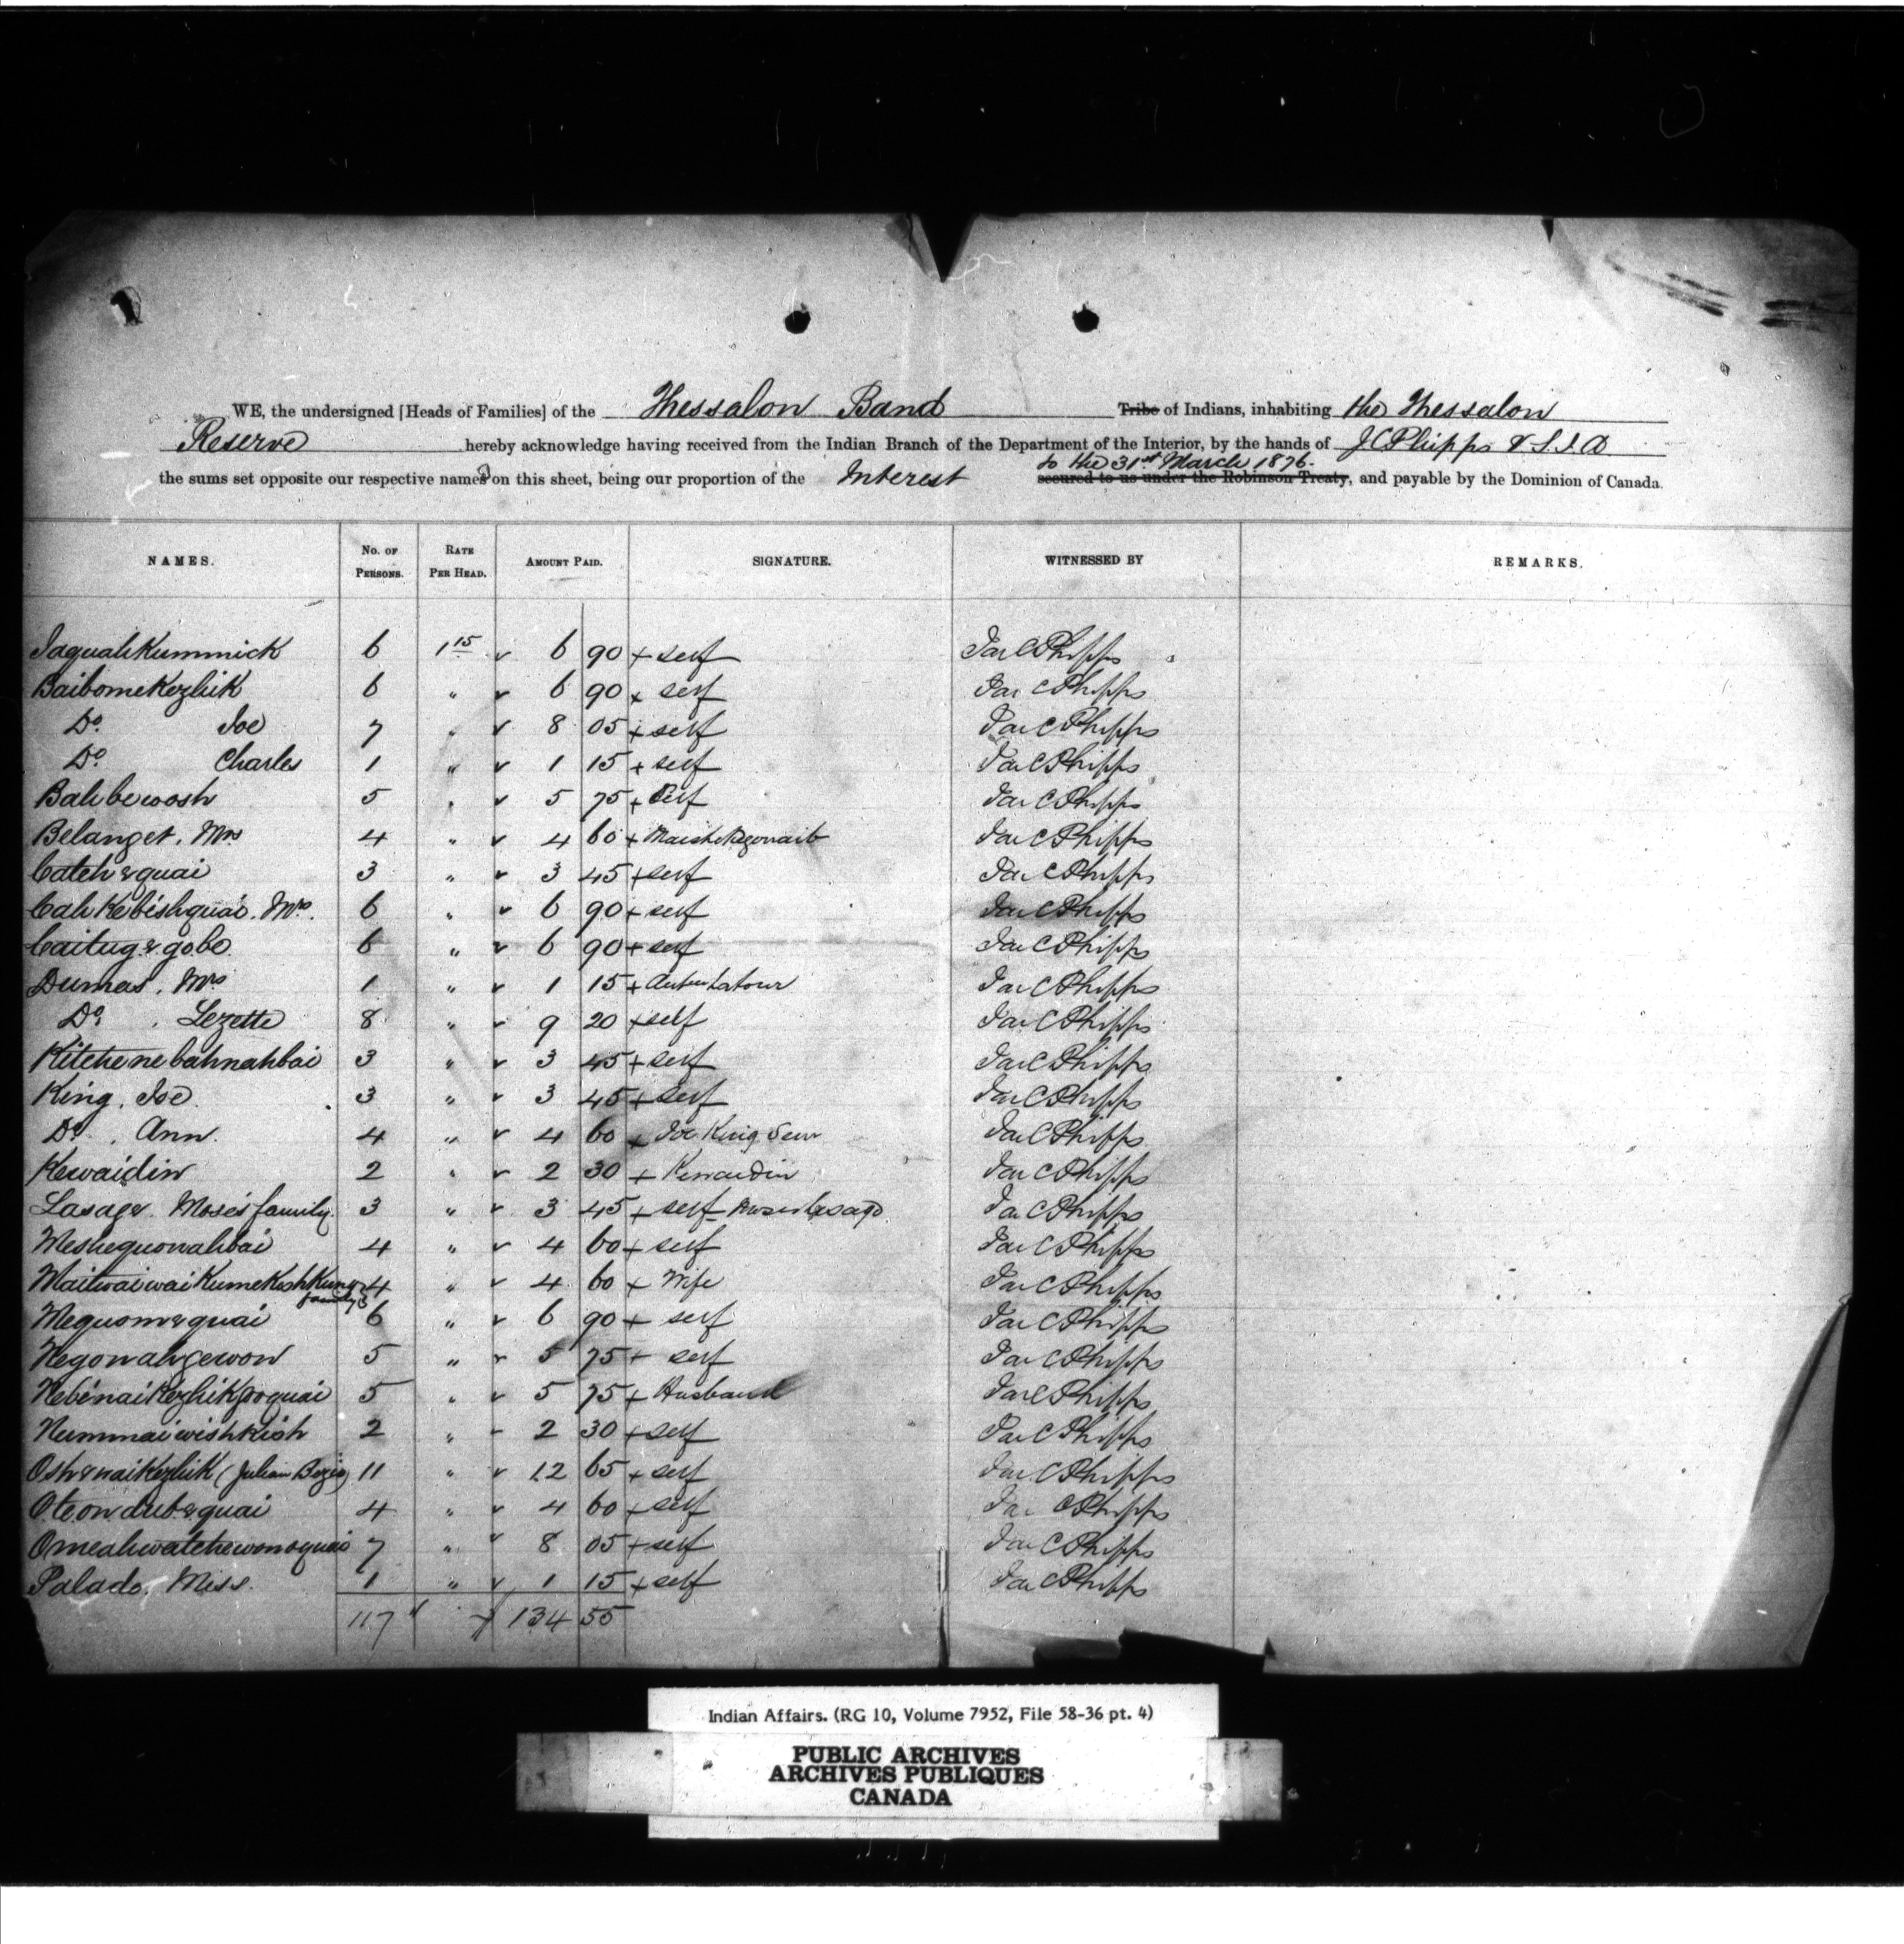 WE, the undersigned [Heads of Families] of the Thessalon Band Tribe of Indians, inhabiting the Thessalon
Reserve hereby acknowledge having received from the Indian Branch of the Department of the Interior, by the hands of J C Phipps V. S. I. A
to the 31st March 1876.
the sums set opposite our respective names on this sheet, being our proportion of the Interest secured to us under the Robinson Treaty, and payable by the Dominion of Canada.
NAMES. No. of Persons. Rate Per Head. Amount Paid. SIGNATURE. WITNESSED BY REMARKS.
Iaquahkummick 6 1 15 6 90 + self Jas C Phipps
Baibomekezhik 6 " 6 90 x self Jas C Phipps
Do. Joe 7 " 8 05 + self Jas C Phipps
Do. Charles 1 " 1 15 + self Jas C Phipps
Bahbewosh 5 " 5 75 + self Jas C Phipps
Belanger, Mrs 4 " 4 60 + Jas C Phipps
Catchequai 3 " 3 45 + self Jas C Phipps
Cahkebishquai, Mrs. 6 " 6 90 + self Jas C Phipps
Caitugegobo 6 " 6 90 + self Jas C Phipps
Dumas, Mrs 1 " 1 15 + Latour Jas C Phipps
Do. Lezette 8 " 9 20 + self Jas C Phipps
Kitchenebahnahbai 3 " 3 45 + self Jas C Phipps
King, Joe 3 " 3 45 + self Jas C Phipps
Do. , Ann. 4 " 4 60 + Joe King Jas C Phipps
Kewaidin 2 " 2 30 + Kewaidin Jas C Phipps
Lasage. Moses family. 3 " 3 45 + self Moses Lesage Jas C Phipps
Meshequonahbai 4 " 4 60 + self Jas C Phipps
Maitwaiwaikumekeshkung 4 " 4 60 + Wife Jas C Phipps
family
Mequomequai 6 " 6 90 + self Jas C Phipps
Negonahgewon 5 " 5 75 + self Jas C Phipps
Nebenaikezhikgoquai 5 " 5 75 + Husband Jas C Phipps
Nummaiwishkish 2 " 2 30 + self Jas C Phipps
Oshenaikezhik (Julian Bezio) 11 " 12 65 + self Jas C Phipps
Oteondubequai 4 " 4 60 + self Jas C Phipps
Omeahwatchewonoquai 7 " 8 05 + self Jas C Phipps
Palado, Miss. 1 " 1 15 + self Jas C Phipps
117 134 55
Indian Affairs. (RG 10, Volume 7952, File 58-36 pt. 4)
PUBLIC ARCHIVES
ARCHIVES PUBLIQUES
CANADA